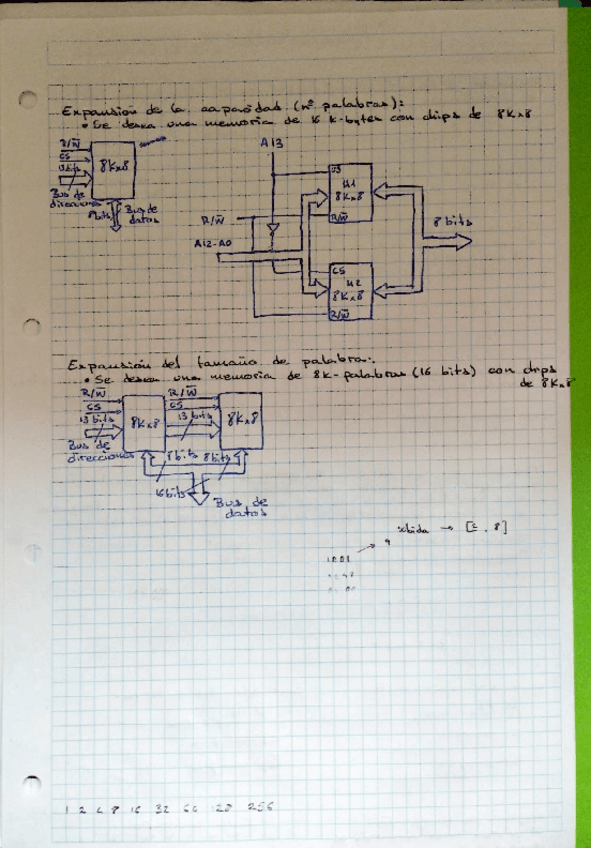 Expansión de la capacidad (nº palabras):
• Se desea una memoria de 16 k-bytes con chips de 8Kx8
R/W̅
CS
13 bits
8Kx8
Bus de
direcciones
8 bits
Bus de
datos
A13
CS
M1
8Kx8
R/W̅
R/W̅
A12-A0
8 bits
CS
M2
8Kx8
R/W̅
Expansión del tamaño de palabra:
• Se desea una memoria de 8k-palabras (16 bits) con chips
de 8Kx8
R/W̅
CS
13 bits
8Kx8
R/W̅
CS
13 bits
8Kx8
Bus de
direcciones
8 bits
8 bits
16 bits
Bus de
datos
1001
9
1 2 4 8 16 32 64 128 256